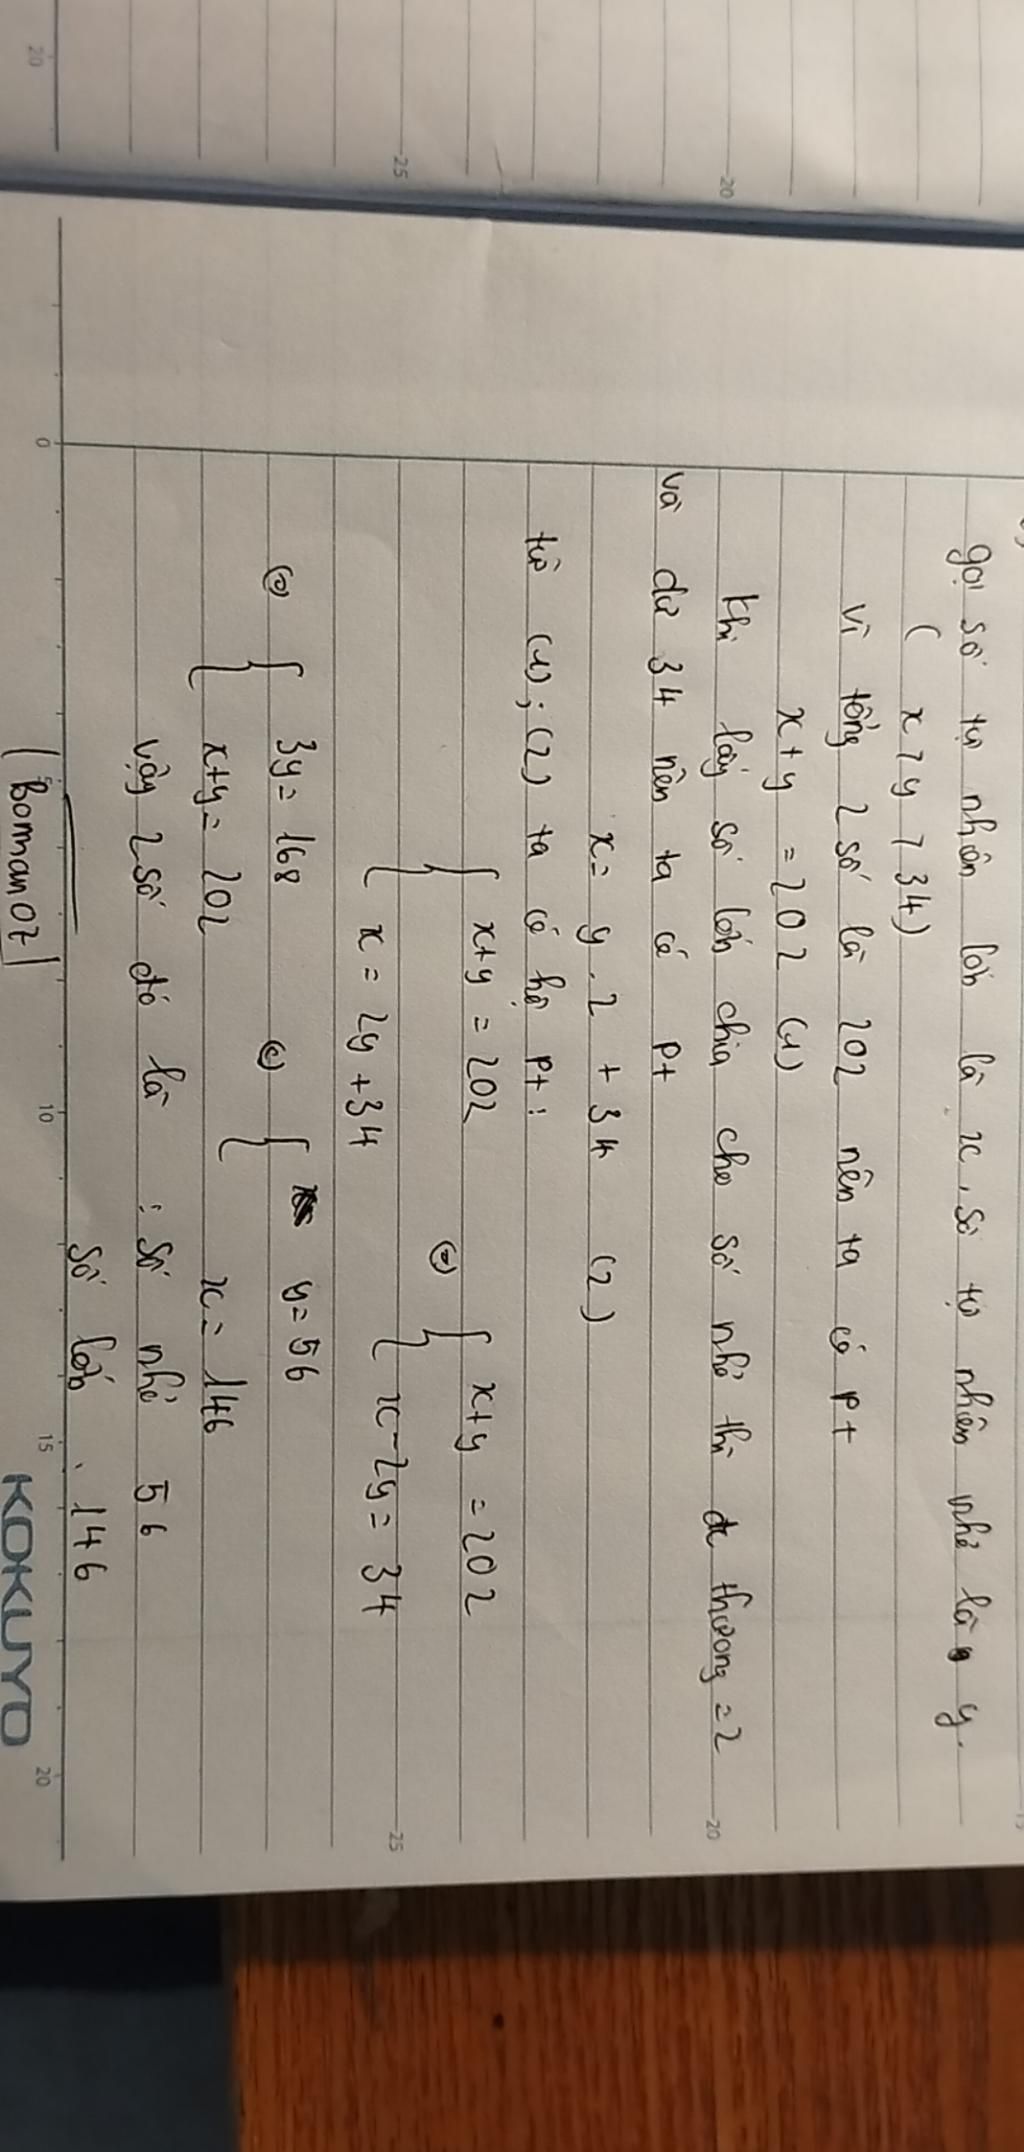 gọi số tự nhiên lớn là x, số tự nhiên nhỏ là y.
( x > y > 34)
vì tổng 2 số là 202 nên ta có pt
x + y = 202 (1)
khi lấy số lớn chia cho số nhỏ thì đc thương = 2
và dư 34 nên ta có pt
x = y . 2 + 34 (2)
từ (1); (2) ta có hệ pt :
{ x+y = 202 (=) { x+y = 202
{ x = 2y +34 { x-2y = 34
(=) { 3y = 168 (=) { y = 56
{ x+y = 202 { x = 146
vậy 2 số đó là : số nhỏ 56
số lớn . 146
Boman07
KOKUYO
0
10
15
20
20
25
20
25